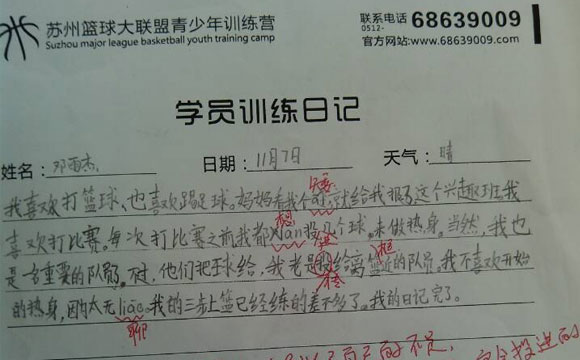 苏州篮球大联盟青少年训练营
Suzhou major league basketball youth training camp
联系电话 0512- 68639009
官方网站:www.68639009.com
学员训练日记
姓名: 邓雨杰 日期: 11月7日 天气: 晴
矮
我喜欢打篮球、也喜欢踢足球。妈妈看我个ǎi,就给我报了这个兴趣班。我
想
喜欢打比赛。每次打比赛之前我都xiǎn投几个球。来做热身。当然,我也
框
是一名重要的队员。对,他们把球给,我老是给离篮近的队员,我不喜欢开始
的热身,因为太无liáo。我的三步上篮已经练的差不多了。我的日记完了。
聊